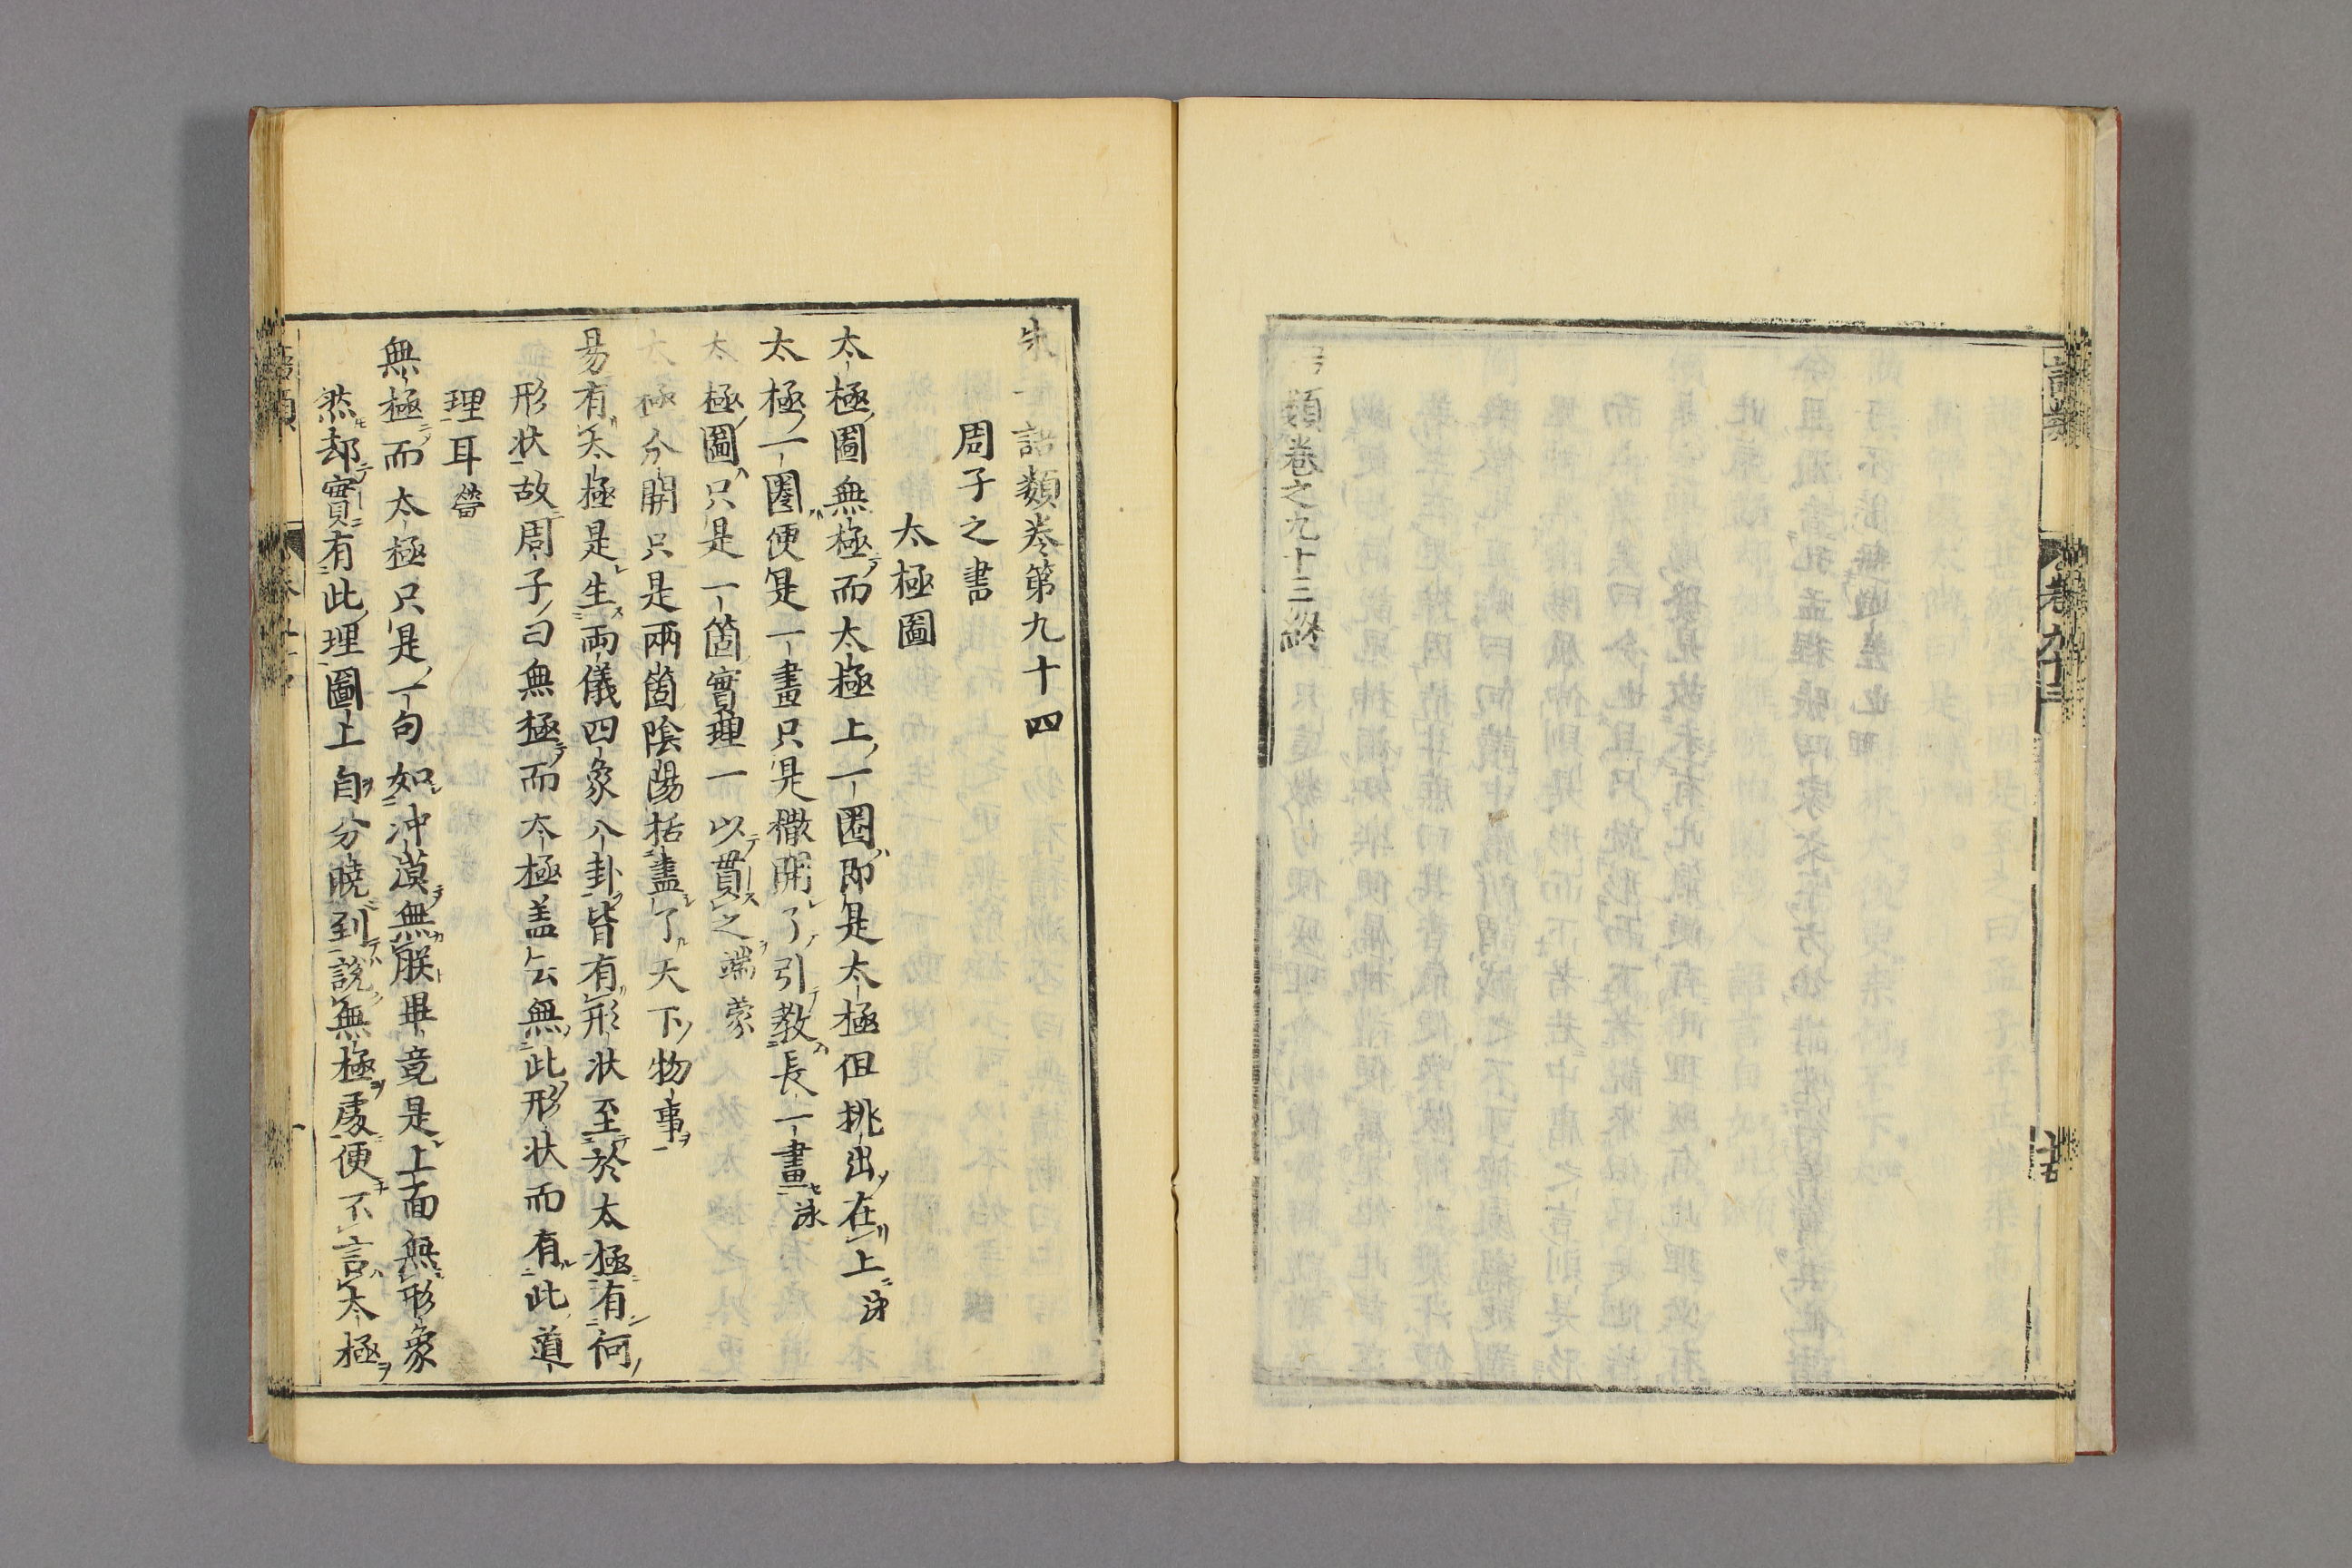 類卷之九十三終
語類
卷九十三
朱 語類卷第九十四
周子之書
太極圖
太極圖無極而太極上一圈即是太極但挑出在上 泳
太極一圈便是一畫只是撒開了引教長一畫 泳
太極圖只是一箇實理一以貫之 端蒙
太極分開只是兩箇陰陽括盡了天下物事
易有太極是生兩儀四象八卦皆有形状至於太極有何
形状故周子曰無極而太極盖云無此形状而有此道
理耳 㽦
無極而太極只是一句如冲漠無朕畢竟是上面無形象
然却實有此理圖上自分曉到說無極處便不言太極